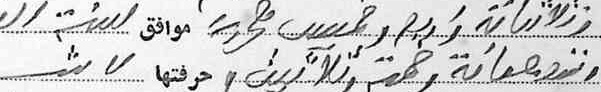 وثلاثمائة واربع وخمسين هجرية موافق لسنة الف
وتسعمائة وخمسة وثلاثين وحرفتها لا شـ